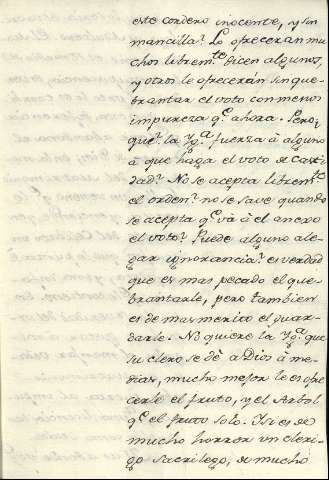 este cordero inocente, y sin
mancilla? Lo ofreceran mu
chos libremte. dicen algunos,
y otros le ofrecerán sin que-
brantar el voto con menos
impureza qe. ahora. Pero,
que? la Yga. fuerza à alguno
à que haga el voto de Casti
dad? No se acepta libremte.
el orden? no se save quando
se acepta qe. và à el anexo
el voto? Puede alguno ale-
gar ignorancia? es verdad
que es mas pecado el que-
brantarle, pero tambien
es de mas merito el guar-
darle. No quiere la Yga. qe.
su clero se dè a Dios à me-
dias, mucho mejor le es ofre
cerle el fruto, y el Arbol
qe. el fruto solo. Y si es de
mucho horror un cleri-
go sacrilego, de mucho